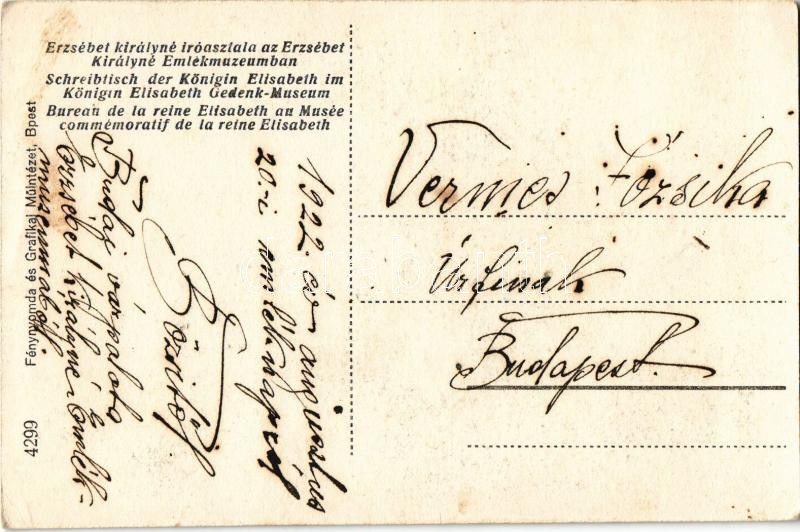 Erzsébet királyné iróasztala az Erzsébet
Királyné Emlékmuzeumban
Schreibtisch der Königin Elisabeth im
Königin Elisabeth Gedenk-Museum
Bureau de la reine Elisabeth au Musée
commémoratif de la reine Elisabeth
4299 Fénynyomda és Grafikai Müintézet, Bpest
Budai várpalota
Erzsébet királyné Emlék-
muzeumából.
1922. év augusztus
20.-i emléknapról
Vermes Józsika
Úrfinak
Budapest.